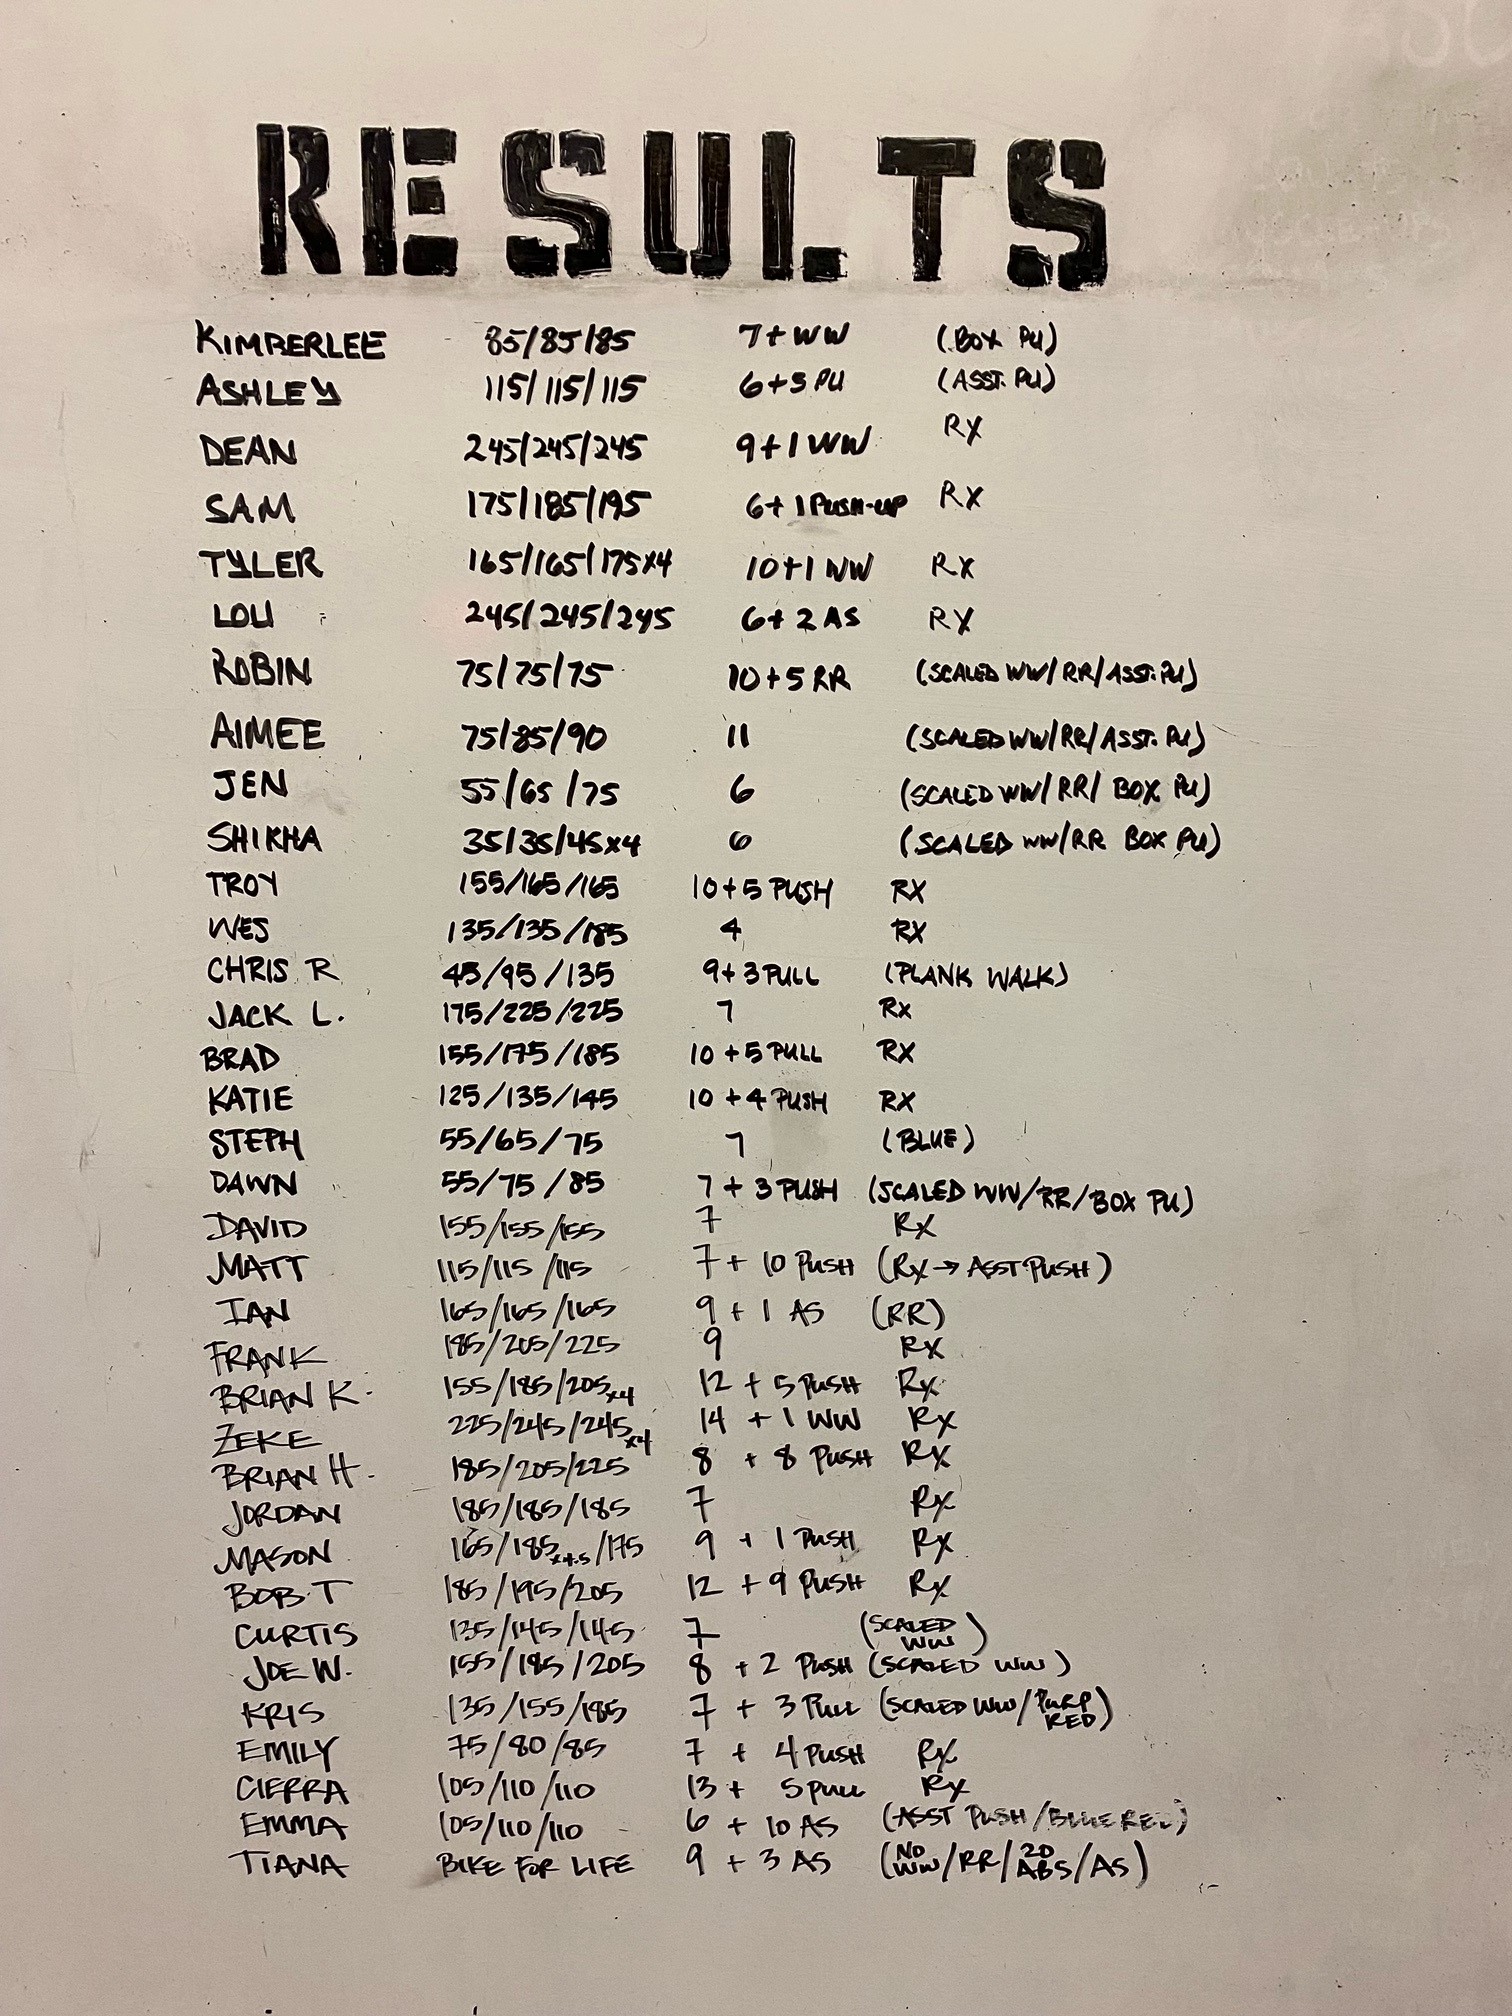 RESULTS
KIMBERLEE 85/85/85 7+WW (BOX PU)
ASHLEY 115/115/115 6+3 PU (ASST. PU)
DEAN 245/245/245 9+1 WW RX
SAM 175/185/195 6+1 PUSH-UP RX
TYLER 165/165/175x4 10+1 WW RX
LOU 245/245/245 6+2 AS RX
ROBIN 75/75/75 10+5 RR (SCALED WW/RR/ASST. PU)
AIMEE 75/85/90 11 (SCALED WW/RR/ASST. PU)
JEN 55/65/75 6 (SCALED WW/RR/ BOX PU)
SHIKHA 35/35/45x4 6 (SCALED WW/RR BOX PU)
TROY 155/165/165 10+5 PUSH RX
WES 135/135/185 4 RX
CHRIS R 45/95/135 9+3 PULL (PLANK WALK)
JACK L. 175/225/225 7 RX
BRAD 155/175/185 10+5 PULL RX
KATIE 125/135/145 10+4 PUSH RX
STEPH 55/65/75 7 (BLUE)
DAWN 55/75/85 7+3 PUSH (SCALED WW/RR/BOX PU)
DAVID 155/155/155 7 RX
MATT 115/115/115 7+10 PUSH (RX→ASST PUSH)
IAN 165/165/165 9+1 AS (RR)
FRANK 185/205/225 9 RX
BRIAN K. 155/185/205x4 12+5 PUSH RX
ZEKE 225/245/245x4 14+1 WW RX
BRIAN H. 185/205/225 8+8 PUSH RX
JORDAN 185/185/185 7 RX
MASON 165/185x4.5/175 9+1 PUSH RX
BOB T 185/195/205 12+9 PUSH RX
CURTIS 135/145/145 7 (SCALED WW)
JOE W. 155/185/205 8+2 PUSH (SCALED WW)
KRIS 135/155/185 7+3 PULL (SCALED WW/PURP RED)
EMILY 75/80/85 7+4 PUSH RX
CIERRA 105/110/110 13+5 PULL RX
EMMA 105/110/110 6+10 AS (ASST PUSH/BLUE RED)
TIANA BIKE FOR LIFE 9+3 AS (NO WW/RR/20 ABS/AS)